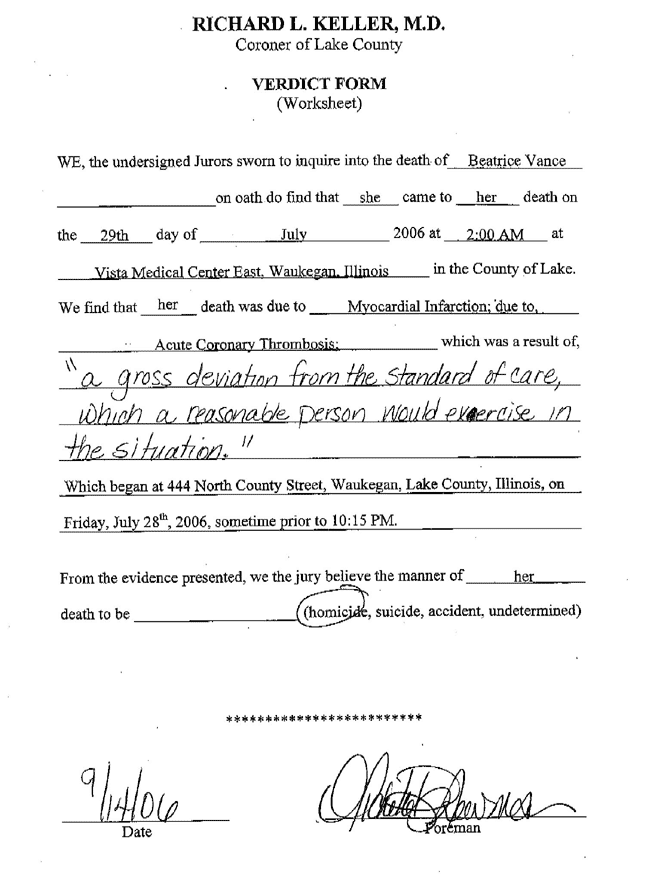 RICHARD L. KELLER, M.D.
Coroner of Lake County
VERDICT FORM
(Worksheet)
WE, the undersigned Jurors sworn to inquire into the death of Beatrice Vance
on oath do find that she came to her death on
the 29th day of July 2006 at 2:00 AM at
Vista Medical Center East, Waukegan, Illinois in the County of Lake.
We find that her death was due to Myocardial Infarction; due to,
Acute Coronary Thrombosis; which was a result of,
"a gross deviation from the standard of care,
which a reasonable person would exercise in
the situation."
Which began at 444 North County Street, Waukegan, Lake County, Illinois, on
Friday, July 28th, 2006, sometime prior to 10:15 PM.
From the evidence presented, we the jury believe the manner of her
death to be (homicide, suicide, accident, undetermined)
*************************
9/14/06
Date Foreman